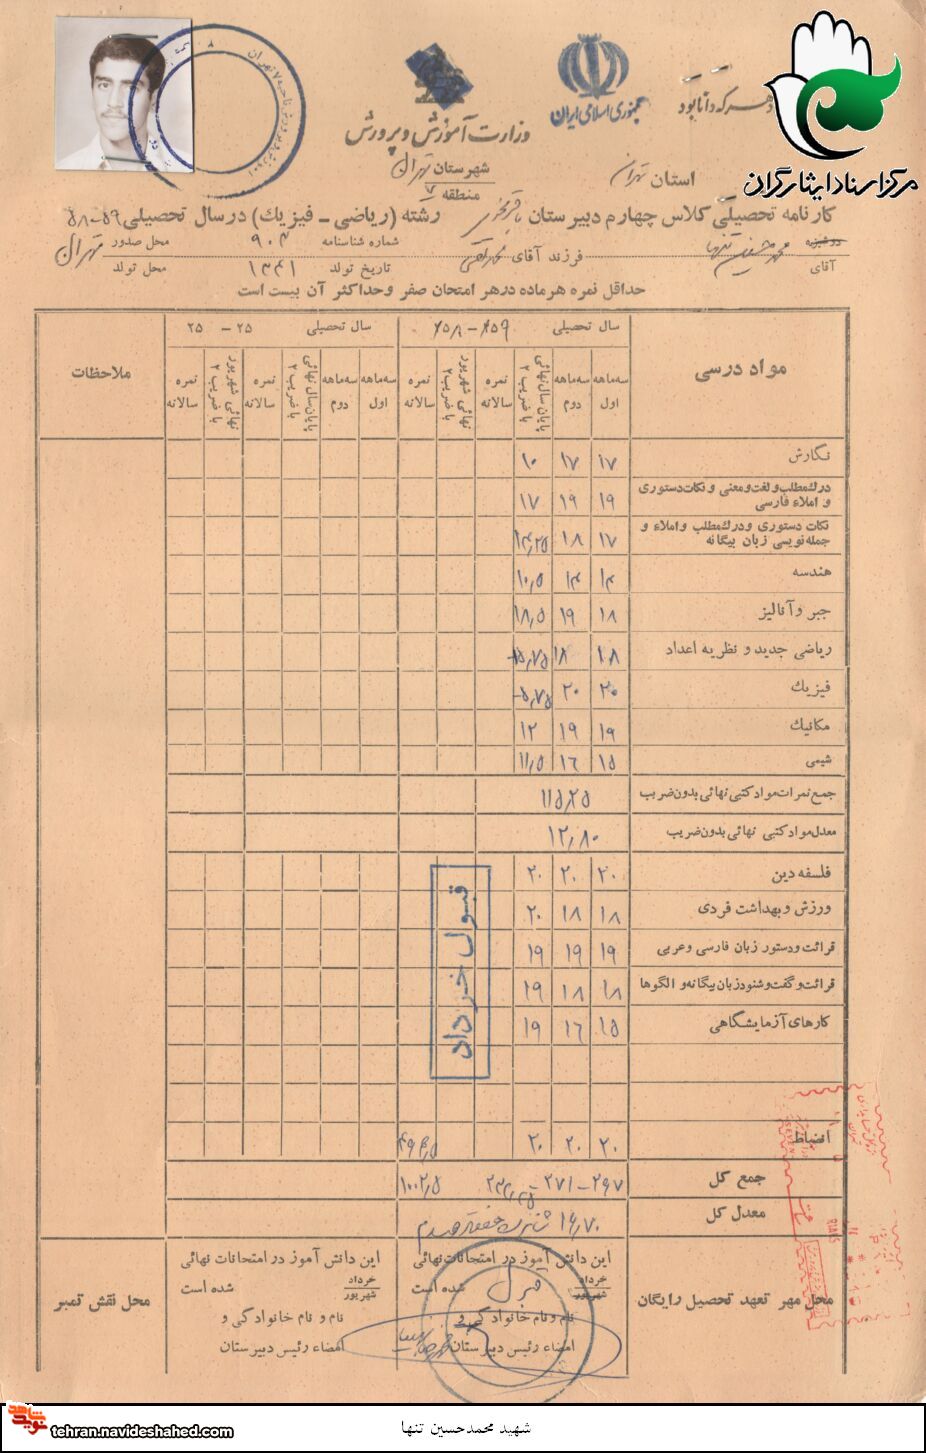 هر که دانا بود
جمهوری اسلامی ایران
وزارت آموزش و پرورش
مرکز اسناد ایثارگران
استان تهران
شهرستان تهران
منطقه ۷
کارنامه تحصیلی کلاس چهارم دبیرستان رشته (ریاضی - فیزیک) در سال تحصیلی ۵۹-۵۸
دوشیزه
آقای محمدحسین تنها فرزند آقای شماره شناسنامه ۹۰۳ محل صدور تهران
تاریخ تولد ۱۳۴۱ محل تولد
حداقل نمره هر ماده در هر امتحان صفر و حداکثر آن بیست است
مواد درسی سال تحصیلی ۵۹ - ۵۸ سال تحصیلی ۲۵ - ۲۵ ملاحظات
سه‌ماهه اول سه‌ماهه دوم پایان سال نهائی با ضریب ۲ نمره سالانه نهائی شهریور با ضریب ۲ نمره سالانه سه‌ماهه اول سه‌ماهه دوم پایان سال نهائی با ضریب ۲ نمره سالانه نهائی شهریور با ضریب ۲ نمره سالانه
نگارش ۱۷ ۱۷ ۱۰
درک مطلب و لغت و معنی و نکات دستوری و املاء فارسی ۱۹ ۱۹ ۱۷
نکات دستوری و درک مطلب و املاء و جمله نویسی زبان بیگانه ۱۷ ۱۸ ۱۴٫۲۵
هندسه ۱۴ ۱۴ ۱۰٫۵
جبر و آنالیز ۱۸ ۱۹ ۱۸٫۵
ریاضی جدید و نظریه اعداد ۱۸ ۱۸ ۱۵٫۷۵
فیزیک ۲۰ ۲۰ ۵٫۷۵
مکانیک ۱۹ ۱۹ ۱۲
شیمی ۱۵ ۱۶ ۱۱٫۵
جمع نمرات مواد کتبی نهائی بدون ضریب ۱۱۵٫۲۵
معدل مواد کتبی نهائی بدون ضریب ۱۲٫۸۰
فلسفه دین ۲۰ ۲۰ ۲۰
ورزش و بهداشت فردی ۱۸ ۱۸ ۲۰
قرائت و دستور زبان فارسی و عربی ۱۹ ۱۹ ۱۹
قرائت و گفت و شنود زبان بیگانه و الگوها ۱۸ ۱۸ ۱۹
کارهای آزمایشگاهی ۱۵ ۱۶ ۱۹
قبول خرداد
انضباط ۲۰ ۲۰ ۲۰
جمع کل ۲۶۷ - ۲۷۱ ۱۰۰۲٫۵
معدل کل ۱۶٫۷۰
این دانش آموز در امتحانات نهائی
خرداد
شهریور
قبول شده است
نام و نام خانوادگی و
امضاء رئیس دبیرستان
این دانش آموز در امتحانات نهائی
خرداد
شهریور
شده است
نام و نام خانوادگی و
امضاء رئیس دبیرستان
محل مهر تعهد تحصیل رایگان
محل نقش تمبر
شهید محمدحسین تنها
نوید شاهد
tehran.navideshahed.com